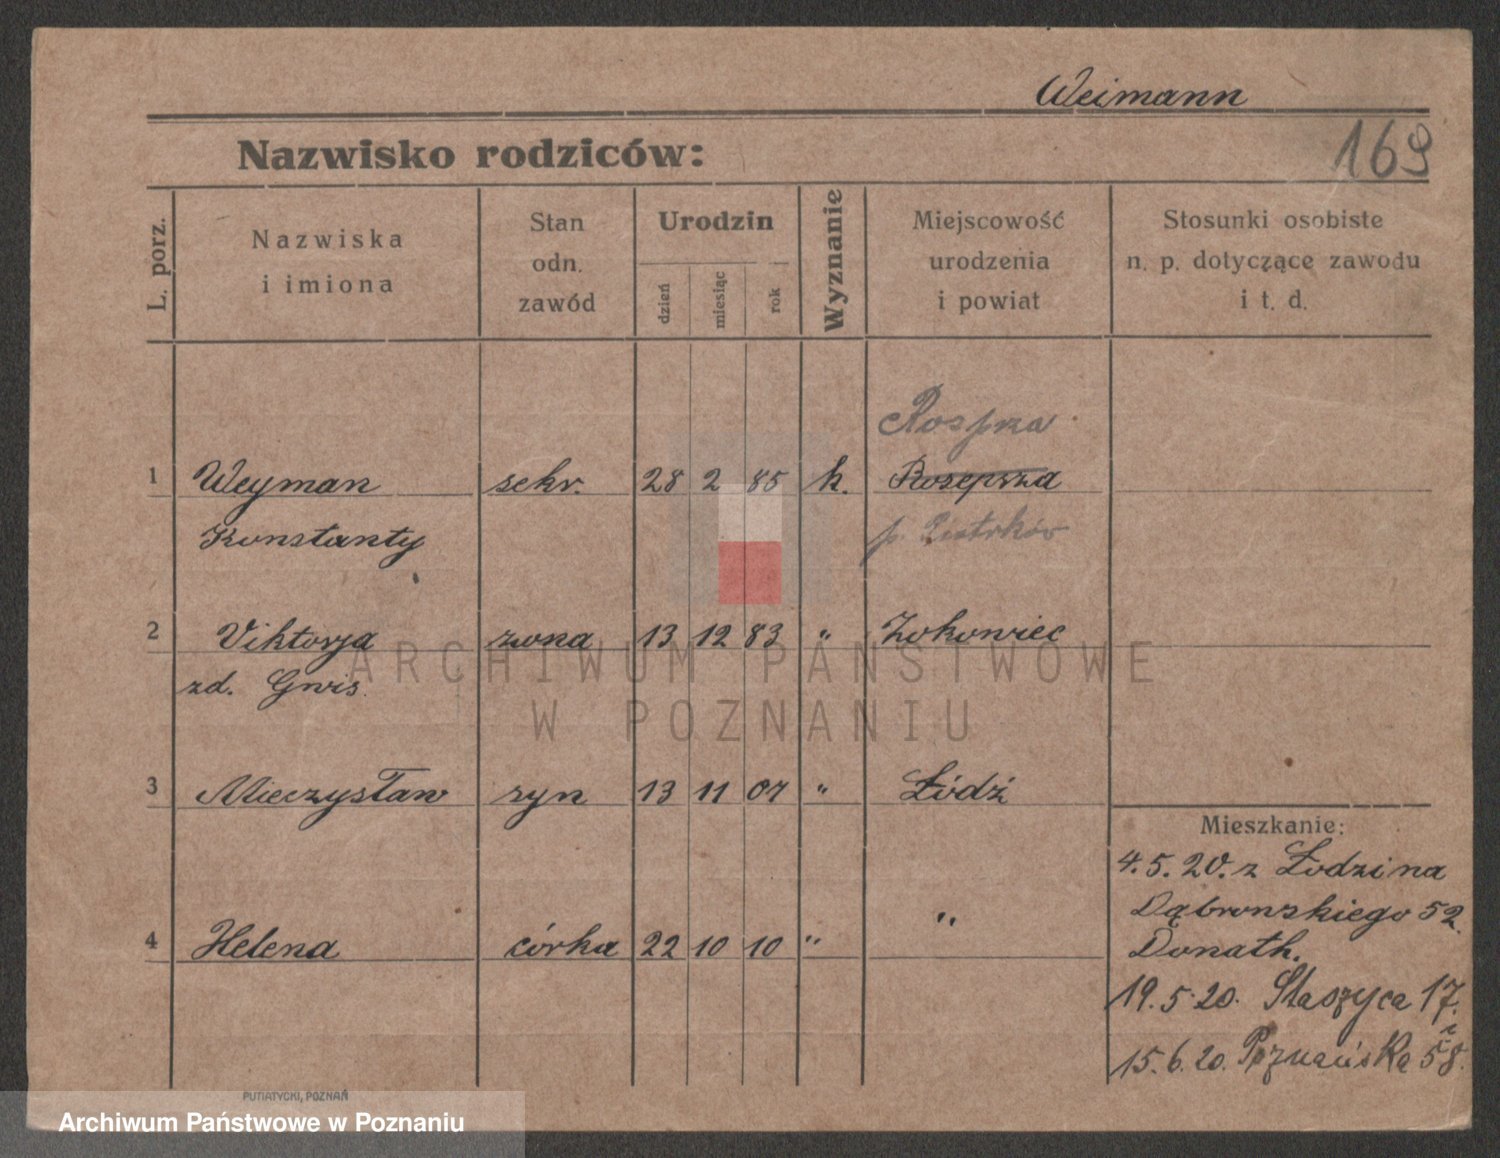 Weimann
169
Nazwisko rodziców:
L. porz.
Nazwiska
i imiona
Stan
odn.
zawód
Urodzin
dzień
miesiąc
rok
Wyznanie
Miejscowość
urodzenia
i powiat
Stosunki osobiste
n. p. dotyczące zawodu
i t. d.
Rospza
1 Weyman sekr. 28 2 85 k. Rosepsza
Konstanty p. Piotrków
2 Viktorja zona 13 12 83 " Żokowiec
zd. Gwis.
3 Mieczysław syn 13 11 07 " Łódź
Mieszkanie:
4.5.20. z Łodzi na
Dąbrowskiego 52.
4 Helena córka 22 10 10 " "
Donath.
19.5.20. Staszyca 17.
15.6.20. Poznańska 58.
PUTIATYCKI, POZNAŃ
ARCHIWUM PAŃSTWOWE
W POZNANIU
Archiwum Państwowe w Poznaniu